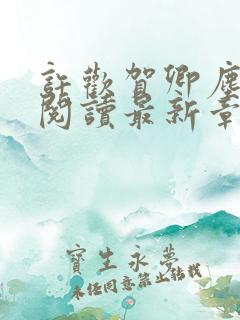 許歡賀卿塵
閱讀最新章
寶生永夢
未经同意禁止转载